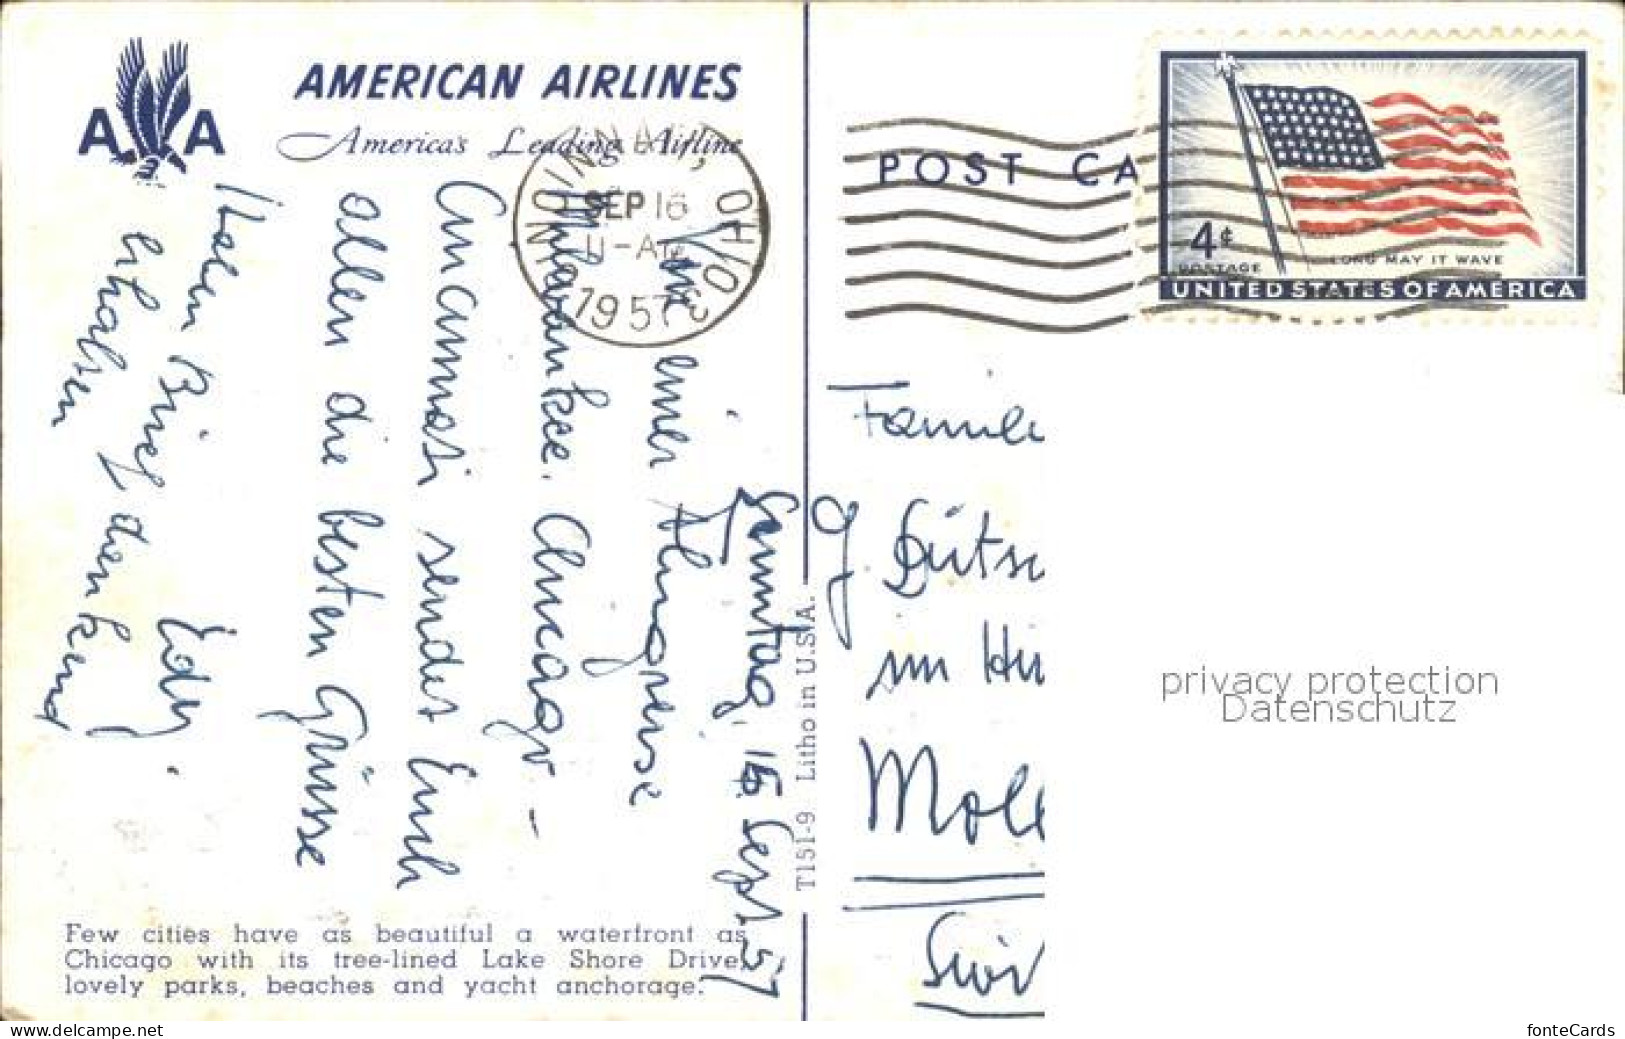 A A
AMERICAN AIRLINES
America's Leading Airline
CINCINNATI, OHIO
SEP 16
11-AM
1957
3
POST CA
4¢
POSTAGE
LONG MAY IT WAVE
UNITED STATES OF AMERICA
Sonntag, 15. Sept. 57
Von einer Flugreise
Milwaukee. Chicago –
Cincinnati sendet Euch
allen die besten Grüsse
Edy.
Euren Brief dankend
erhalten
T151-9 Litho in U.S.A.
Few cities have as beautiful a waterfront as
Chicago with its tree-lined Lake Shore Drive,
lovely parks, beaches and yacht anchorage.
Famili
G Bütsc
im
privacy protection
Datenschutz
www.delcampe.net
fonteCards